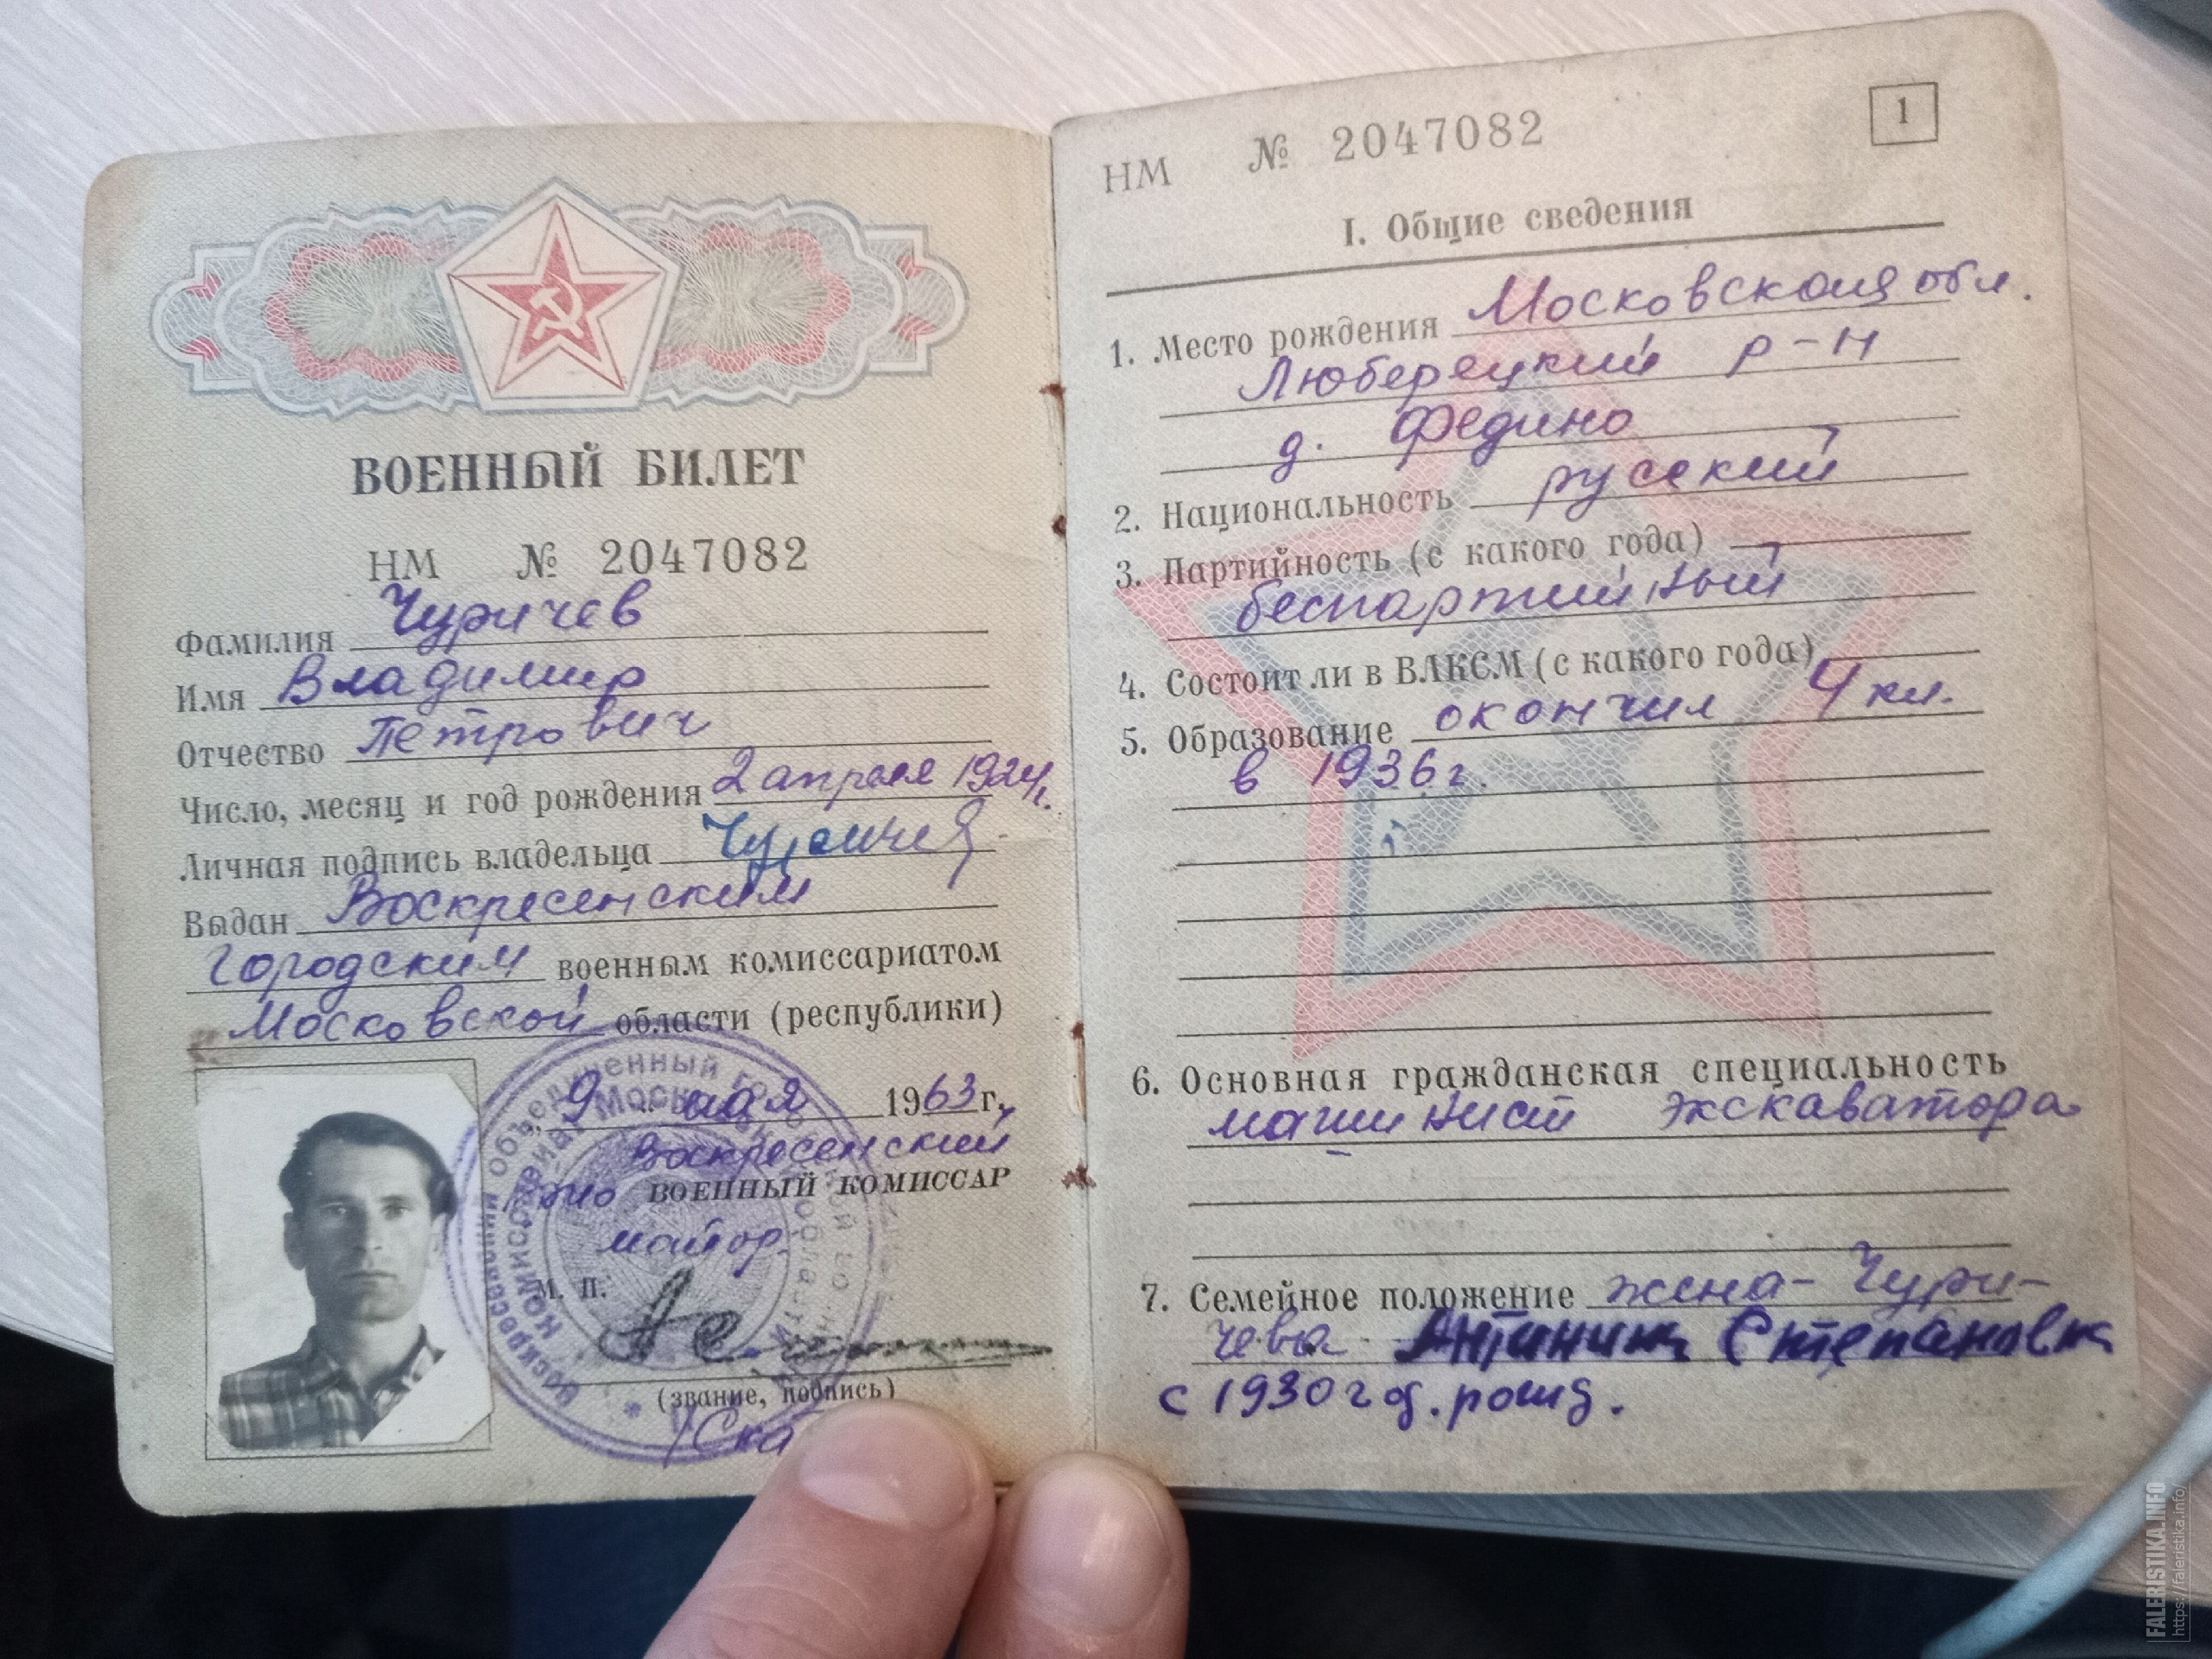 ВОЕННЫЙ БИЛЕТ
НМ № 2047082
Фамилия Чуричев
Имя Владимир
Отчество Петрович
Число, месяц и год рождения 2 апреля 1924г.
Личная подпись владельца
Выдан Воскресенским
Городским военным комиссариатом
Московской области (республики)
9 мая 1963 г.
Воскресенский
ВОЕННЫЙ КОМИССАР
майор
М. П.
(звание, подпись)
НМ № 2047082
1
I. Общие сведения
1. Место рождения Московская обл.
Люберецкий р-н
д. Федино
2. Национальность русский
3. Партийность (с какого года)
беспартийный
4. Состоит ли в ВЛКСМ (с какого года)
5. Образование окончил 4 кл.
в 1936г.
6. Основная гражданская специальность
машинист экскаватора
7. Семейное положение жена - Чури-
чева Антонина Степановна
с 1930 г
FALERISTIKA.INFO
https://faleristika.info/